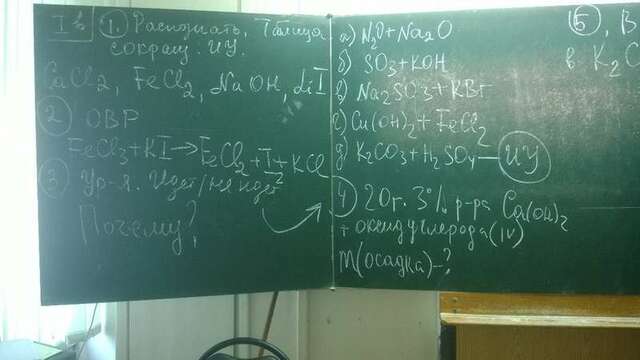 I в 1. Распознать. Таблица
сокращ. ИУ.
CaCl2, FeCl2, NaOH, LiI
2 ОВР
FeCl3+KI→FeCl2+I2+KCl
3 Ур-я. Идет/не идет
Почему?
а) N2O+Na2O
б) SO3+KOH
в) Na2SO3+KBr
г) Cu(OH)2+FeCl2
д) K2CO3+H2SO4 — ИУ
4 20г. 3% р-ра Ca(OH)2
+ оксид углерода (IV)
m(осадка)-?
5, В
в K2C